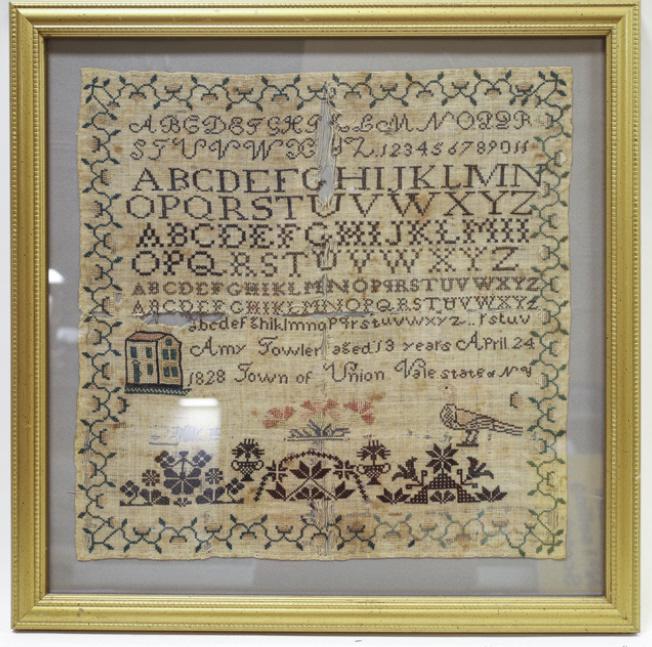 ABCDEFGHIKLMNOPQR
STUVWXYZ.1234567891011
ABCDEFGHIJKLMN
OPQRSTUVWXYZ
ABCDEFGHIJKLMN
OPQRSTUVWXYZ
ABCDEFGHIKLMNOPQRSTUVWXYZ
ABCDEFGHIKLMNOPQRSTUVWXYZ
abcdefghiklmnopqrstuvwxyz..rstuv
Amy Fowler aged 13 years April 24
1828 Town of Union Vale state of NY